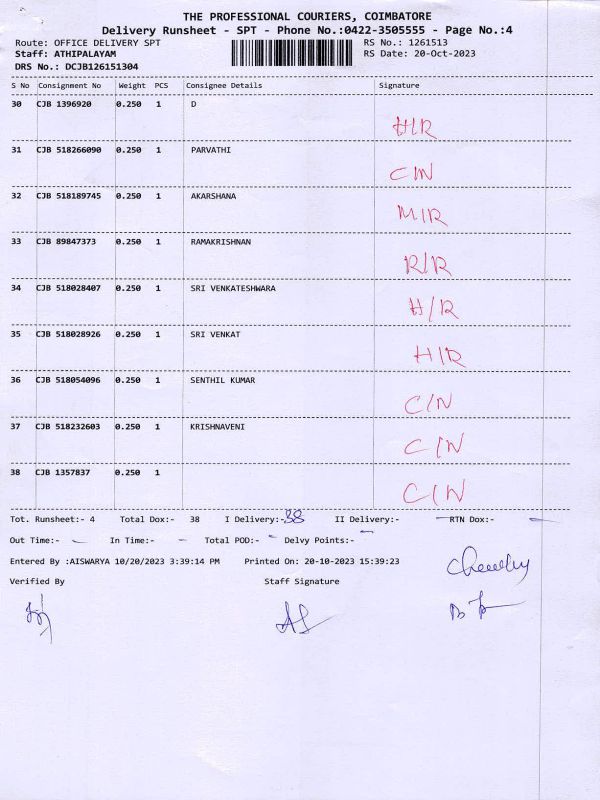 THE PROFESSIONAL COURIERS, COIMBATORE
Delivery Runsheet - SPT - Phone No.:0422-3505555 - Page No.:4
Route: OFFICE DELIVERY SPT RS No.: 1261513
Staff: ATHIPALAYAM RS Date: 20-Oct-2023
DRS No.: DCJB126151304
S No Consignment No Weight PCS Consignee Details Signature
30 CJB 1396920 0.250 1 D
H/R
31 CJB 518266090 0.250 1 PARVATHI
C/N
32 CJB 518189745 0.250 1 AKARSHANA
M/R
33 CJB 89847373 0.250 1 RAMAKRISHNAN
R/R
34 CJB 518028407 0.250 1 SRI VENKATESHWARA
H/R
35 CJB 518028926 0.250 1 SRI VENKAT
H/R
36 CJB 518054096 0.250 1 SENTHIL KUMAR
C/N
37 CJB 518232603 0.250 1 KRISHNAVENI
C/N
38 CJB 1357837 0.250 1
C/N
Tot. Runsheet:- 4 Total Dox:- 38 I Delivery:-38 II Delivery:- - RTN Dox:- -
Out Time:- - In Time:- - Total POD:- - Delvy Points:- -
Entered By :AISWARYA 10/20/2023 3:39:14 PM Printed On: 20-10-2023 15:39:23
Verified By Staff Signature